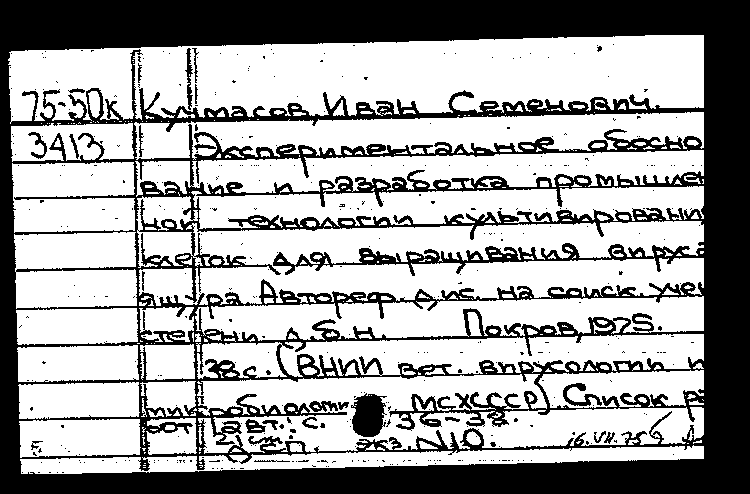 75-50к Кучмасов, Иван Семенович.
3413 Экспериментальное обосно
вание и разработка промышлен
ной технологии культивировани
клеток для выращивания вируса
ящура. Автореф. дис. на соиск. учен
степени д.б.н. Покров, 1975.
38 с. (ВНИИ вет. вирусологии и
микробиологии МСХСССР) Список ра
бот авт.: с. 36-38.
ДСП. экз. N10. 16.VII.75